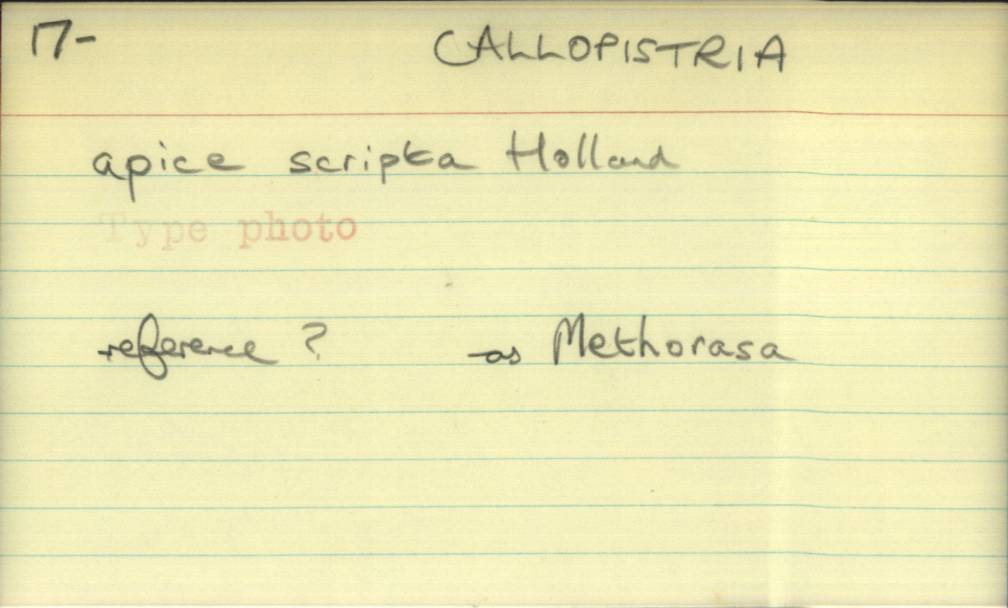 17- CALLOPISTRIA
apice scripta Holland
Type photo
reference ? as Methorasa